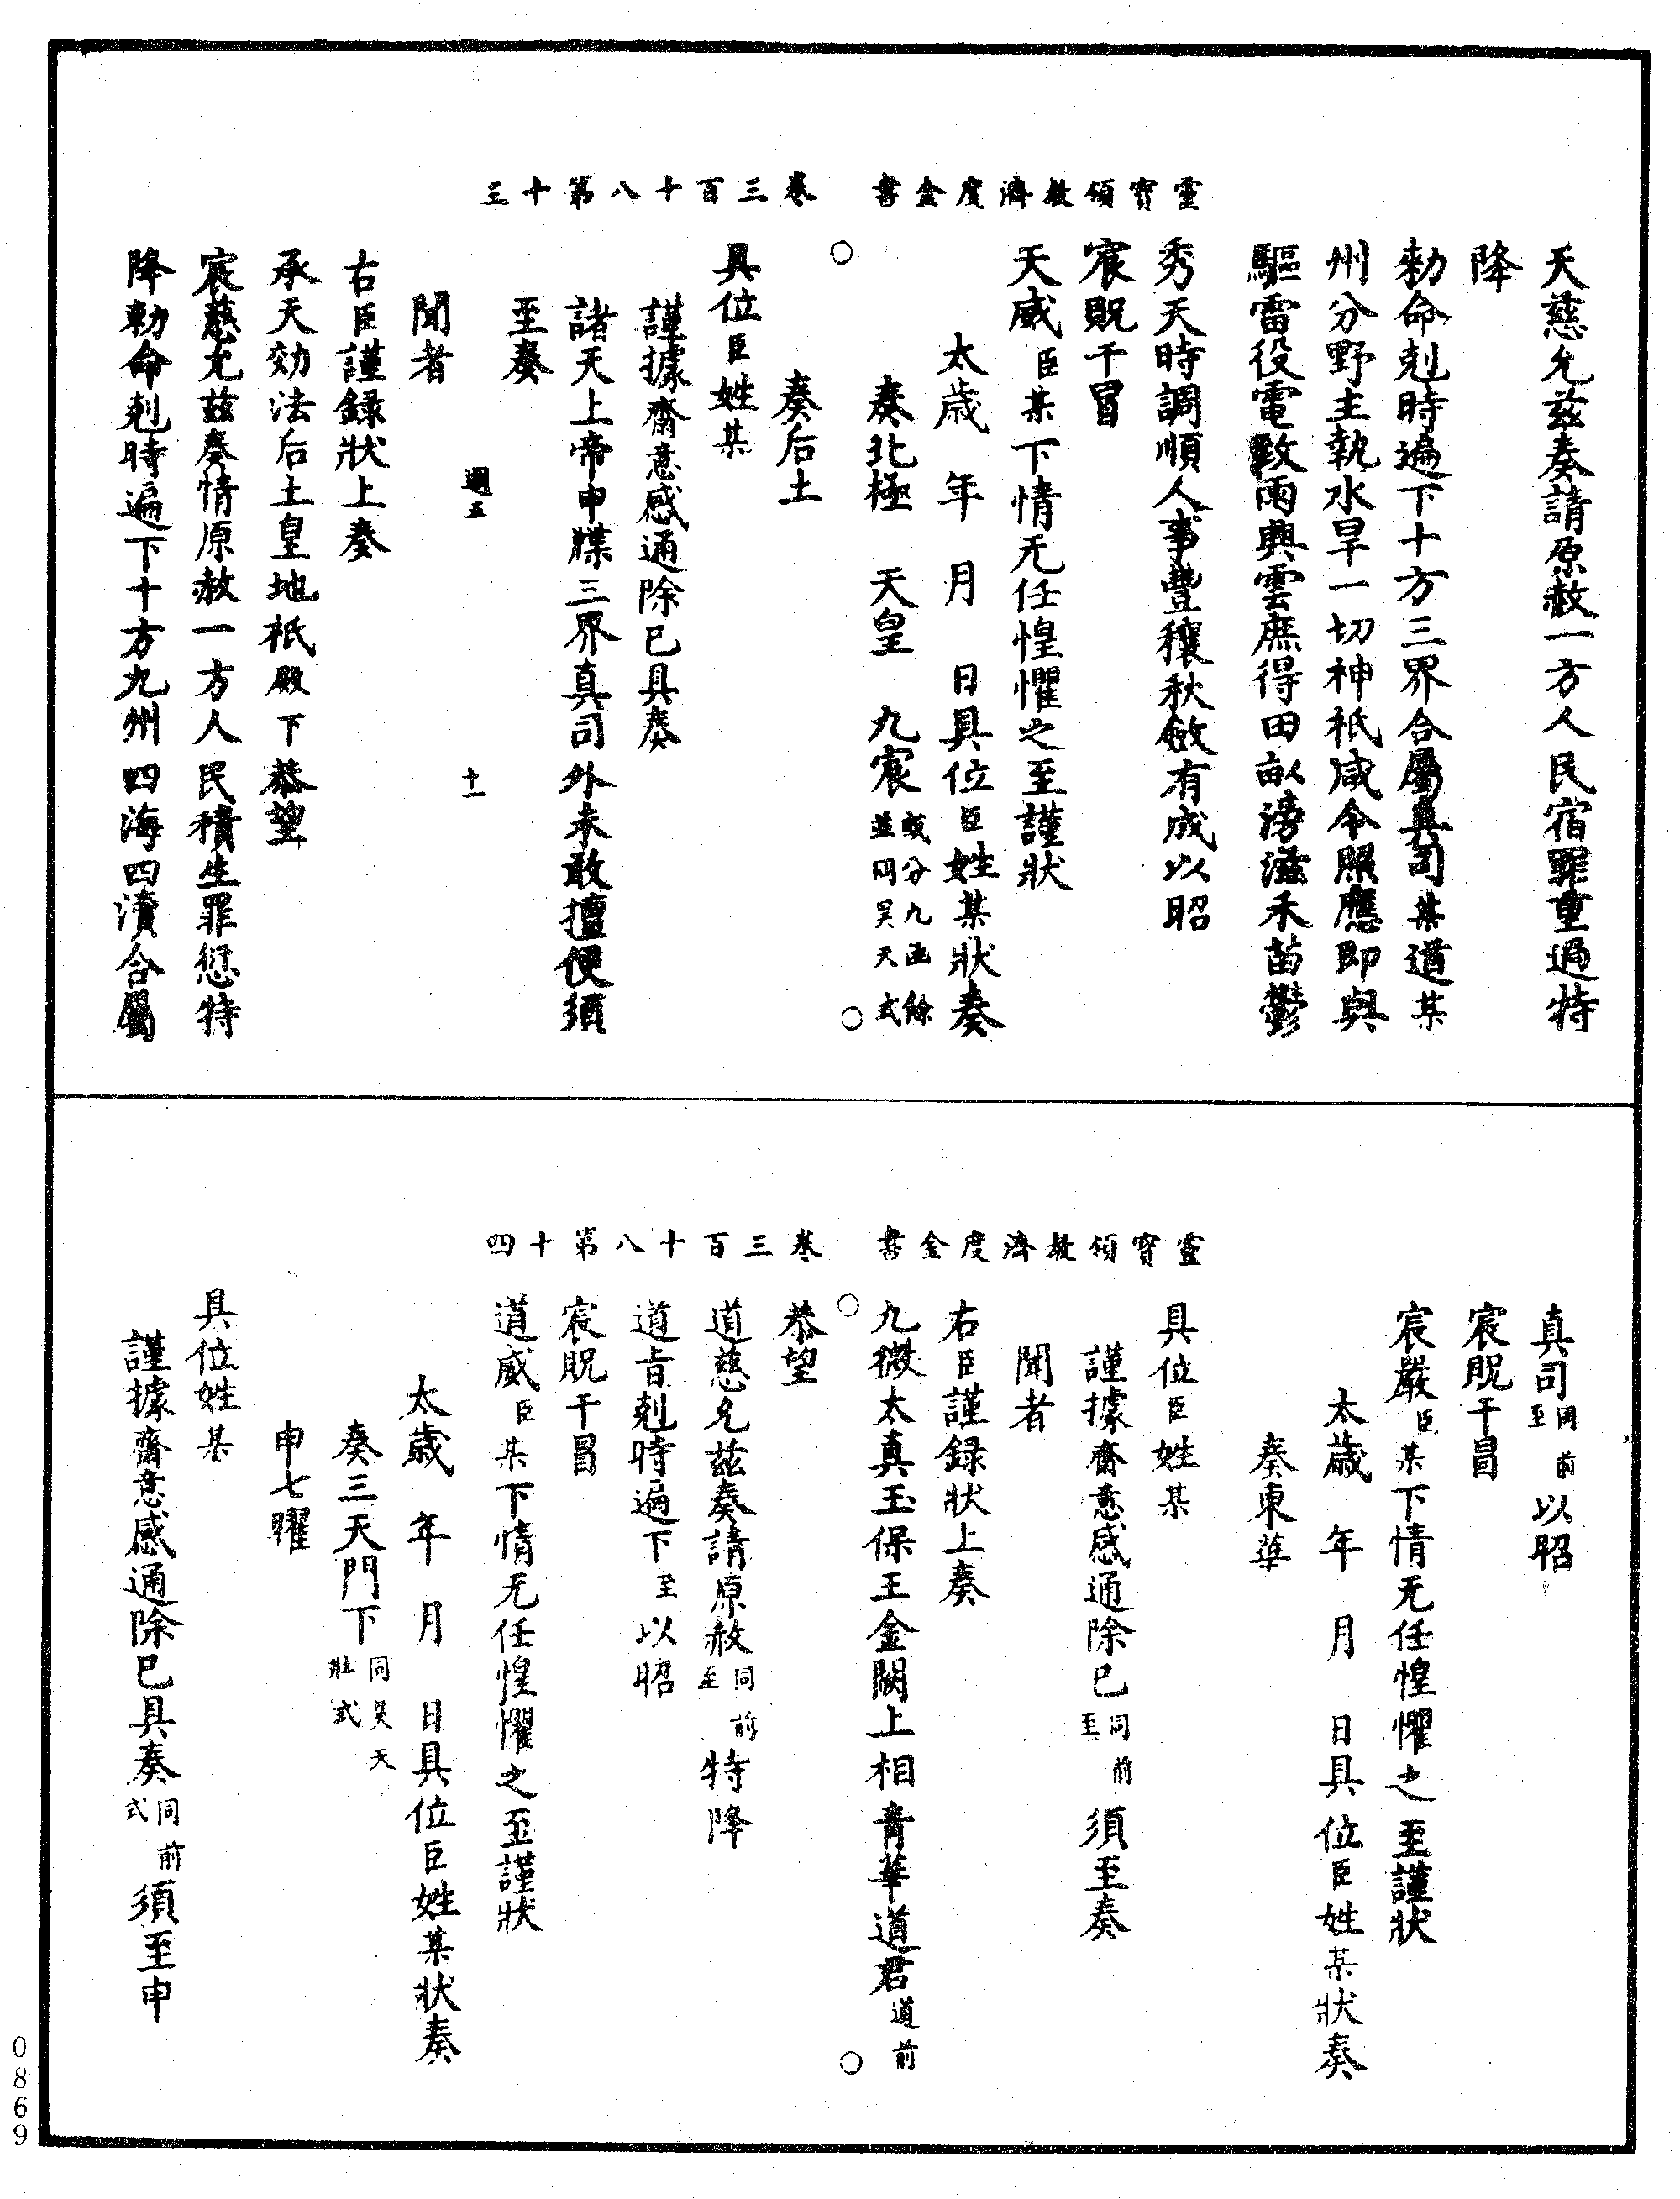 靈寶領教濟度金書　卷三百十八第十三
天慈允茲奏請原赦一方人民宿罪重過特
降
勑命剋時遍下十方三界合屬真司某道某
州分野主執水旱一切神祇咸令照應即與
驅雷役電致雨興雲庶得田畝滂滋禾苗鬱
秀天時調順人事豐穰秋斂有成以昭
宸貺干冒
天威臣某下情无任惶懼之至謹狀
太歲　年　月　日具位臣姓某狀奏
奏北極　天皇　九宸或分九函餘並同昊天式
奏后土
具位臣姓某
謹據齋意感通除已具奏
諸天上帝申牒三界真司外未敢擅便須
至奏
週五　十一
聞者
右臣謹録狀上奏
承天効法后土皇地祇殿下恭望
宸慈允茲奏情原赦一方人民積生罪愆特
降勑命剋時遍下十方九州四海四瀆合屬
靈寶領教濟度金書　卷三百十八第十四
真司同前至以昭
宸貺干冒
宸嚴臣某下情无任惶懼之至謹狀
太歲　年　月　日具位臣姓某狀奏
奏東華
具位臣姓某
謹據齋意感通除已同前至須至奏
聞者
右臣謹録狀上奏
九微太真玉保王金闕上相青華道君道前
恭望
道慈允茲奏請原赦同前至特降
道旨剋時遍下至以昭
宸貺干冒
道威臣某下情无任惶懼之至謹狀
太歲　年　月　日具位臣姓某狀奏
奏三天門下同昊天狀式
申七曜
具位姓某
謹據齋意感通除已具奏同前式須至申
0869